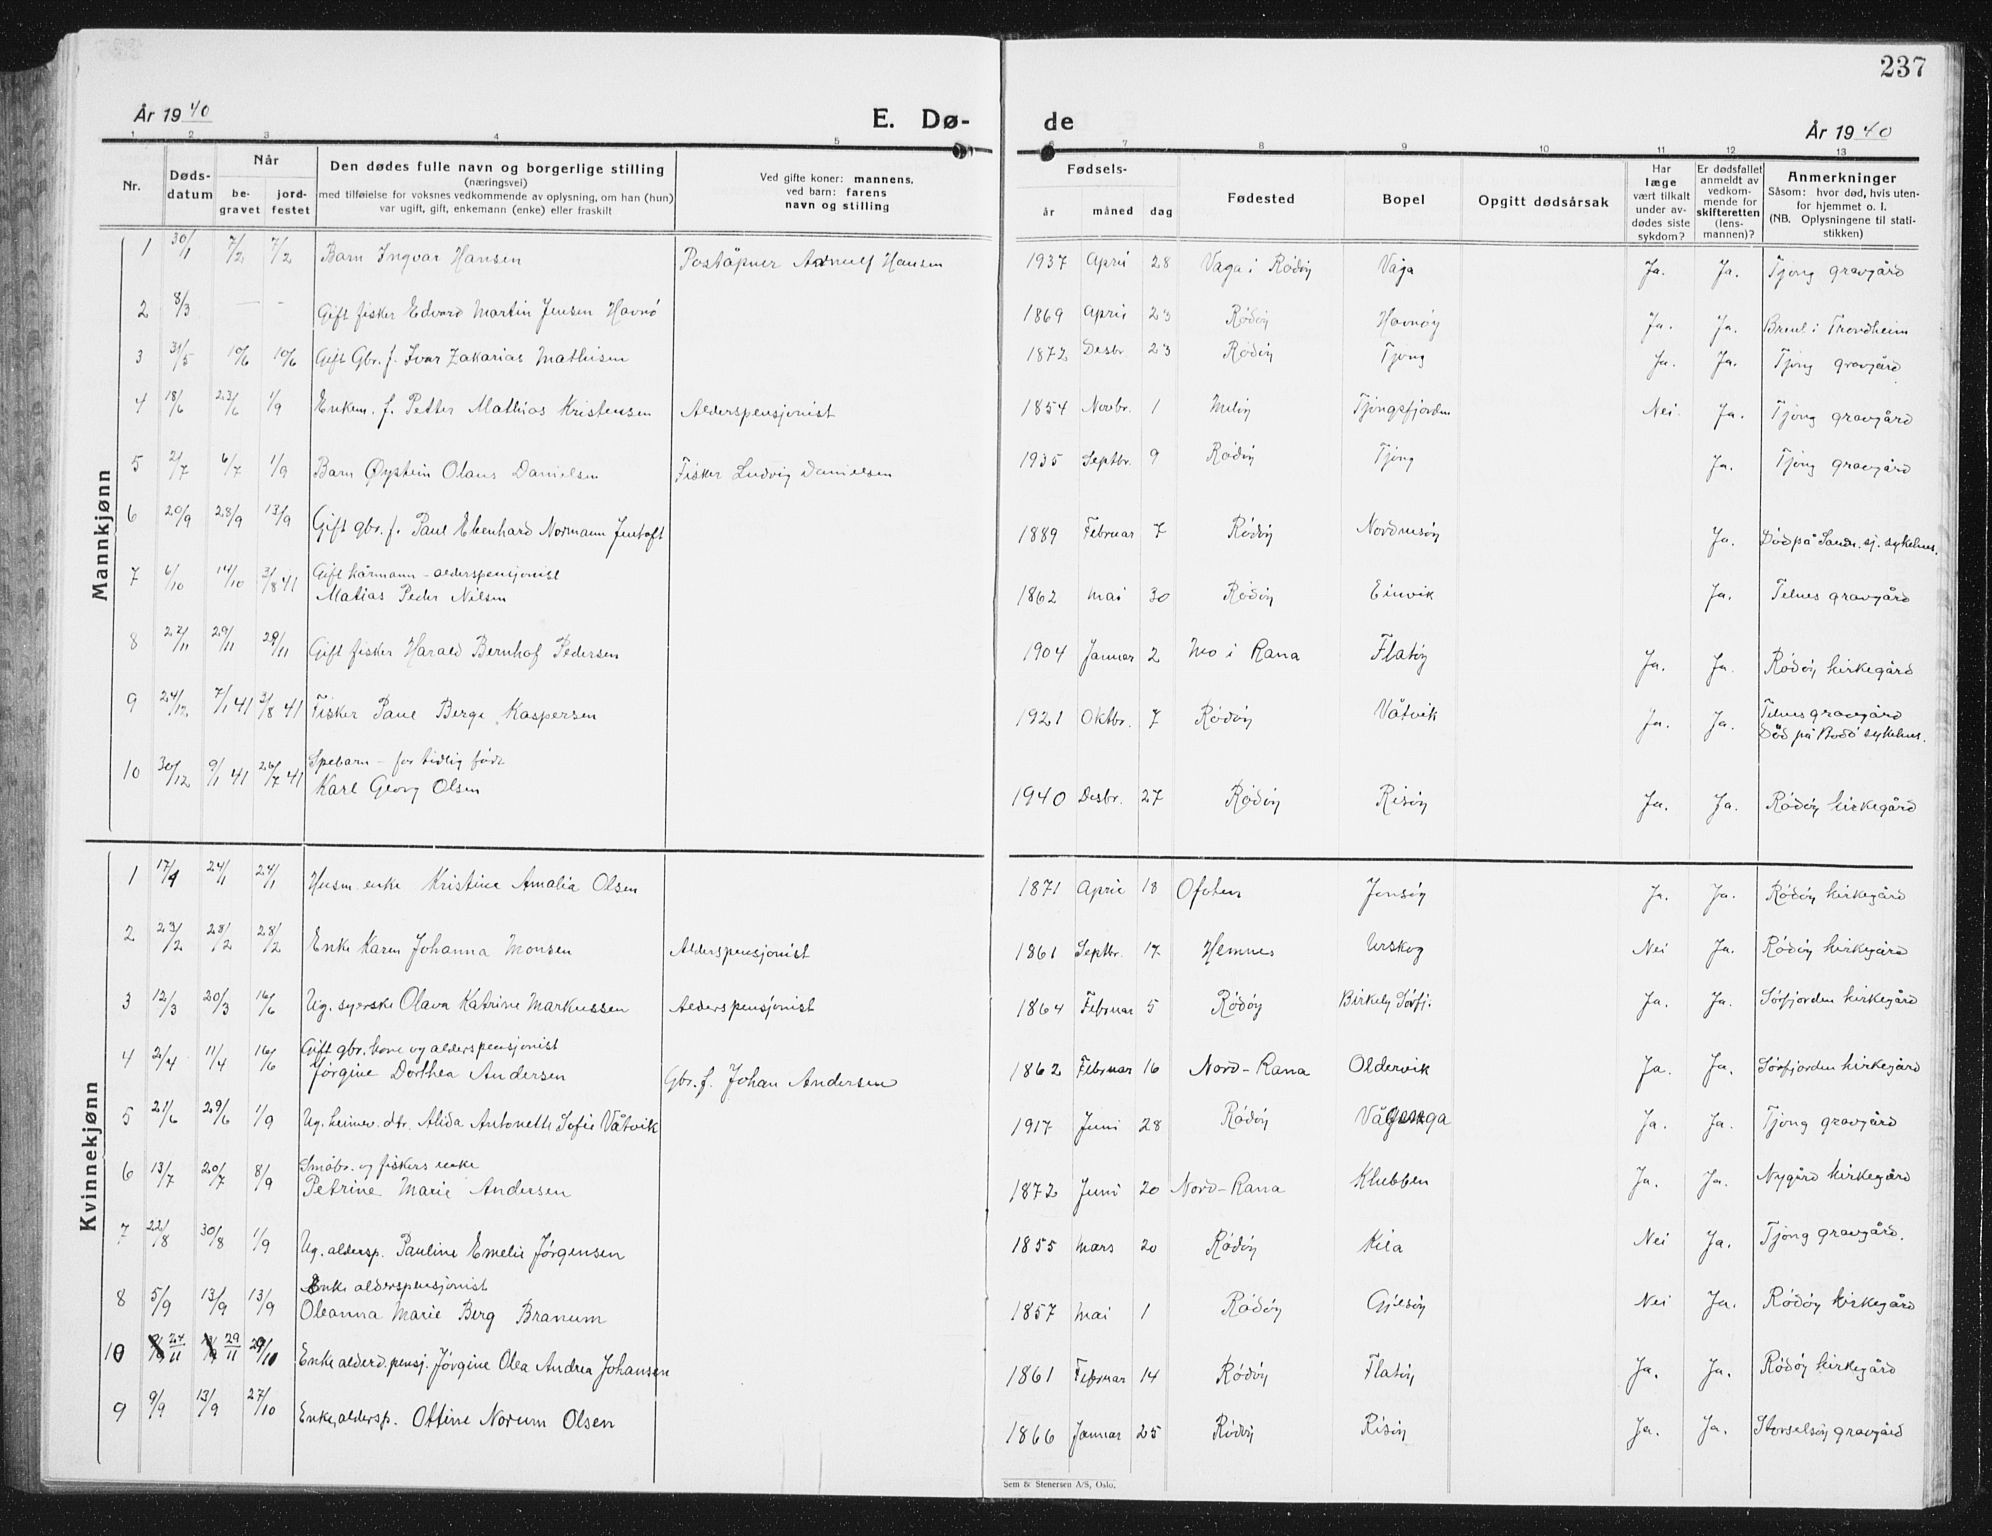 237
År 1940 E. Dø- de År 1940
1 2 3 4 5 6 7 8 9 10 11 12 13
Nr. Døds-datum Når be-gravet jord-festet
Den dødes fulle navn og borgerlige stilling
(næringsvei)
med tilføielse for voksnes vedkommende av oplysning, om han (hun)
var ugift, gift, enkemann (enke) eller fraskilt
Ved gifte koner: mannens,
ved barn: farens
navn og stilling
Fødsels- år måned dag
Fødested
Bopel
Opgitt dødsårsak
Har læge vært tilkalt under av-dødes siste sykdom?
Er dødsfallet anmeldt av vedkom-mende for skifteretten (lens-mannen)?
Anmerkninger
Såsom: hvor død, hvis uten-for hjemmet o. l.
(NB. Oplysningene til stati-stikken)
Mannkjønn
1 30/1 7/2 7/2 Barn Ingvar Hansen Poståpner Arnulf Hansen 1937 April 28 Vaga i Rödöy Våja Ja. Ja. Tjong gravgård
2 8/3 — - Gift fisker Edvard Martin Jensen Havnö 1869 April 23 Rödöy Havnöy Ja. Ja. Brent i Trondheim
3 31/5 10/6 10/6 Gift Gbr. f. Ivar Zakarias Mathisen 1872 Desbr 23 Rödöy Tjong Ja. Ja. Tjong gravgård
4 18/6 23/6 1/9 Enkem. f. Petter Mathias Kristensen Alderspensjonist 1854 Novbr. 1 Melöy Tjongsfjorden Nei. Ja. Tjong gravgård
5 2/7 6/7 1/9 Barn Øystein Olaus Danielsen Fisker Ludvig Danielsen 1935 Septbr. 9 Rödöy Tjong Ja. Tjong gravgård
6 20/9 28/9 13/9 Gift gbr. f. Paul Ebenhard Normann Jentoft 1889 Februar 7 Rödöy Nordnesöy Ja. Död på Sandn. sj. sykehus.
7 6/10 14/10 3/8 41 Gift kårmann - alderspensjonist
Matias Peder Nilsen 1862 mai 30 Rödöy Einvik Ja. Telnes gravgård
8 22/11 29/11 29/11 Gift fisker Harald Bernhof Pedersen 1904 Januar 2 Mo i Rana Flatöy Ja. Ja. Rödöy kirkegård
9 24/12 7/1 41 3/8 41 Fisker Paul Berge Kaspersen 1921 Oktbr. 7 Rödöy Våtvik Ja. Ja. Telnes gravgård
Död på Bodö sykehus.
10 30/12 9/1 41 26/7 41 Spebarn - for tidlig födt
Karl Georg Olsen 1940 Desbr. 27 Rödöy Risöy Ja. Ja. Rödöy kirkegård
Kvinnekjønn
1 17/1 24/1 24/1 Husm. enke Kristine Amalia Olsen 1871 April 18 Ofoten Jensöy Ja. Ja. Rödöy kirkegård
2 23/2 28/2 28/2 Enke Karen Johanna Monsen Alderspensjonist 1861 Septbr. 17 Hemnes Urskog Nei Ja. Rödöy kirkegård
3 12/3 20/3 16/6 Ug. syerske Olava Katrine Markussen Alderspensjonist 1864 Februar 5 Rödöy Birkely Sörfj. Ja. Ja. Sörfjorden kirkegård
4 2/4 11/4 16/6 Gift gbr. kone og alderspensjonist
Jörgine Dorthea Andersen Gbr. f. Johan Andersen 1862 Februar 16 Nord-Rana Oldervik Ja. Ja. Sörfjorden kirkegård
5 21/6 29/6 1/9 Ug. heimev. dtr. Alida Antonette Sofie Våtvik 1917 Juni 28 Rödöy Ja. Ja. Tjong gravgård
6 13/7 20/7 8/9 Småbr. og fiskers enke
Petrine Marie Andersen 1872 Juni 20 Nord-Rana Klubben Ja. Ja. Nygård kirkegård
7 22/8 30/8 1/9 Ug. aldersp. Pauline Emelie Jörgensen 1855 Mars 20 Rödöy Kila Nei Ja. Tjong gravgård.
8 5/9 13/9 13/9 Enke alderspensjonist
Oleanna Marie Berg Branum 1857 Mai 1 Rödöy Gjesöy Nei Ja. Rödöy kirkegård
10 24/11 29/11 29/10 Enke alderd. pensj. Jörgine Olea Andrea Johansen 1861 Februar 14 Rödöy Flatöy Ja. Ja. Rödöy kirkegård
9 9/9 13/9 27/10 Enke, aldersp. Ottine Norum Olsen 1866 Januar 25 Rödöy Risöy Ja. Ja. Storselsöy gravgård
Sem & Stenersen A/S, Oslo.